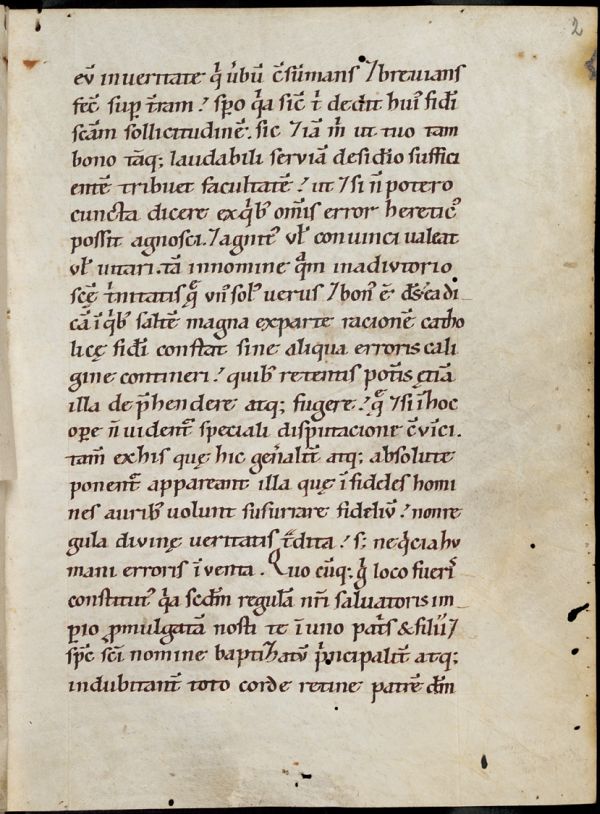 2
eū inueritate q̇ u̇bū c̄sūmans ⁊breuians
fec̄ sup̱ t̄ram ! sp̱o q̄a sic̄ t̄ dedit hui᷒ fidi̅
sc̄am sollicitudinē. sic ⁊iā m̄ ut tuo tam
bono tāq; laudabili seruiā desidi̅o suffici
entē tribuet facultatē ! ut ⁊si n̄ potero
cuncta dicere exq̇b᷒ om̄is error heretic᷒
possit agnosci. ⁊agnit᷒ ul̄ conuinci ualeat
ul̄ uitari. tā innomine q̄m inadiutorio
sc̄ę ṫnitatis q̄ un᷒ sol᷒ uerus ⁊bon᷒ ē d̄s. ea di
cā ı̄ q̇b᷒ saltē magna exparte racionē catho
licę fidi̅ constat sine aliqua erroris cali
gine contineri ! quib᷒ retentis pot̄is ętiā
illa dep̄hendere atq; fugere ! q̄ ⁊si ı̄ hoc
op̱e n̄ uident᷒ speciali disputacione c̄uı̄ci.
tam̄ exhis quę hic gen̄alit̄ atq; absolute
ponent᷒ appareant illa quę ı̄fideles homi
nes aurib᷒ uolunt susurrare fideliū ! nonre
gula diuinę ueritatis t̄dita ! s; neq̇cia hu
mani erroris ı̄uenta. Quo cūq; q̇ loco fueri̅
constitut᷒ q̄a scd̄m regulā nr̄i saluatoris im
p̱io p̱mulgatā nosti te ı̄ uno pat̄s & filii ⁊
sp̄c sc̄i nomine baptizatū ṗncipalit̄ atq;
indubitant̄ toto corde retine patrē dm̄